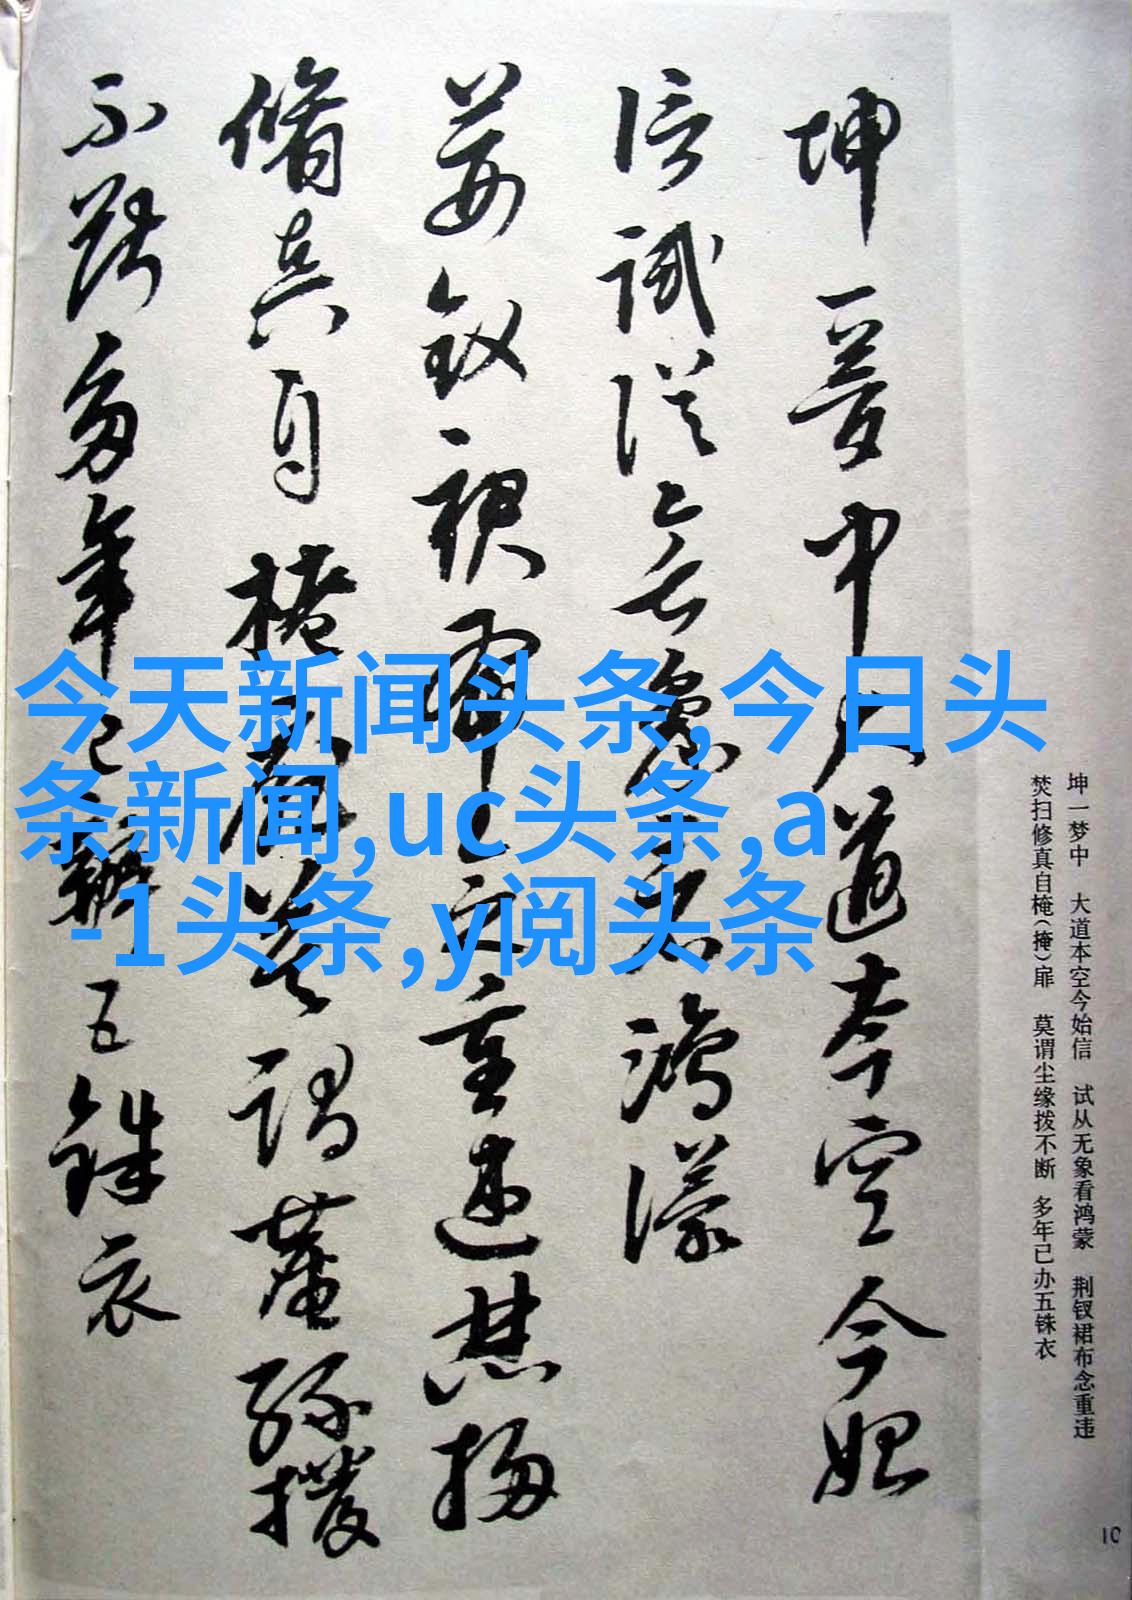 坤一梦中大道本空今始
信试从无象看鸿濛
荆钗裙布念重违焚扫
脩真自掩扉莫谓尘缘拨
不断多年已办五铢衣
今天新闻头条,今日头
条新闻,uc头条,a
-1头条,y阅头条
坤一梦中 大道本空今始信 试从无象看鸿蒙 荆钗裙布念重违
焚扫修真自掩(掩)扉 莫谓尘缘拨不断 多年已办五铢衣
10